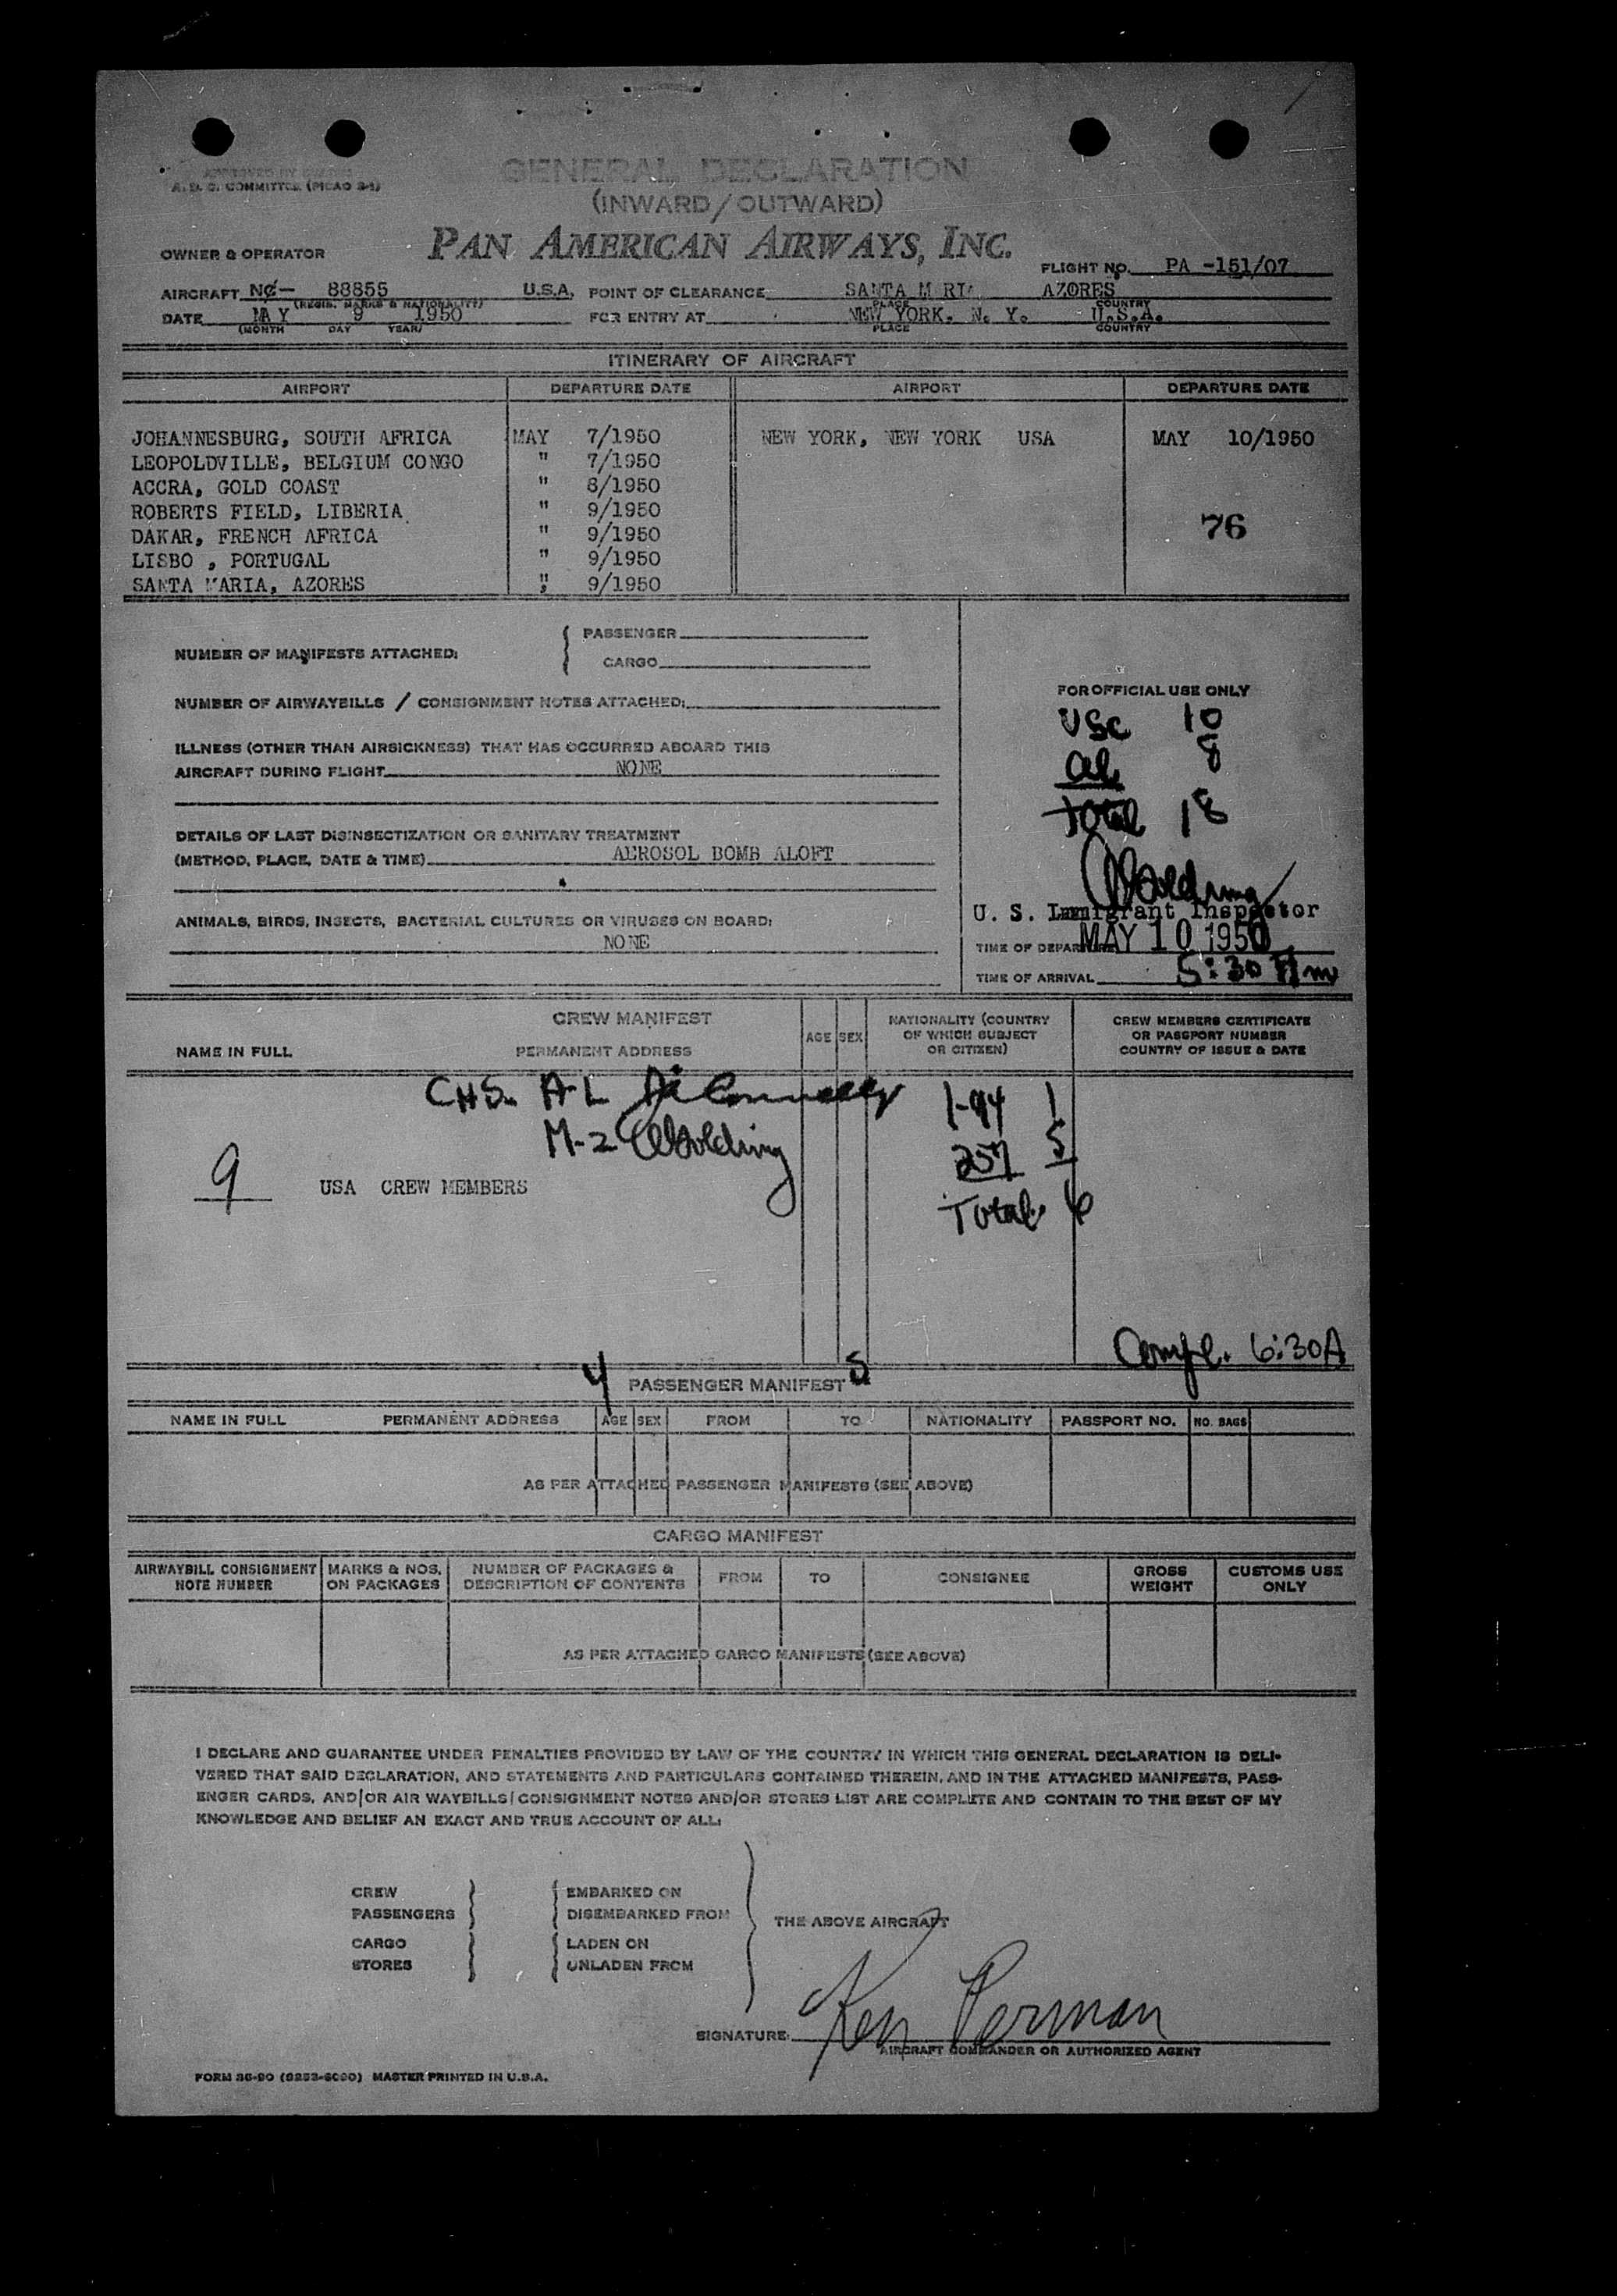 APPROVED BY
A. D. C. COMMITTEE (PICAO 2-1)
GENERAL DECLARATION
(INWARD/OUTWARD)
OWNER & OPERATOR PAN AMERICAN AIRWAYS, INC.
FLIGHT NO. PA -151/07
AIRCRAFT NC- 88855 U.S.A. POINT OF CLEARANCE SANTA M RIA AZORES
(REGIS. MARKS & NATIONALITY) PLACE COUNTRY
DATE MAY 9 1950 FOR ENTRY AT NEW YORK. N. Y. U.S.A.
(MONTH DAY YEAR) PLACE COUNTRY
ITINERARY OF AIRCRAFT
AIRPORT DEPARTURE DATE AIRPORT DEPARTURE DATE
JOHANNESBURG, SOUTH AFRICA MAY 7/1950 NEW YORK, NEW YORK USA MAY 10/1950
LEOPOLDVILLE, BELGIUM CONGO " 7/1950
ACCRA, GOLD COAST " 8/1950
ROBERTS FIELD, LIBERIA " 9/1950
DAKAR, FRENCH AFRICA " 9/1950 76
LISBO , PORTUGAL " 9/1950
SANTA MARIA, AZORES " 9/1950
NUMBER OF MANIFESTS ATTACHED: PASSENGER
CARGO
NUMBER OF AIRWAYBILLS / CONSIGNMENT NOTES ATTACHED:
ILLNESS (OTHER THAN AIRSICKNESS) THAT HAS OCCURRED ABOARD THIS
AIRCRAFT DURING FLIGHT NONE
DETAILS OF LAST DISINSECTIZATION OR SANITARY TREATMENT
(METHOD, PLACE, DATE & TIME) AEROSOL BOMB ALOFT
ANIMALS, BIRDS, INSECTS, BACTERIAL CULTURES OR VIRUSES ON BOARD:
NONE
FOR OFFICIAL USE ONLY
USC 10
al 8
Total 18
U. S. Immigrant Inspector
TIME OF DEPARTURE MAY 10 1950
TIME OF ARRIVAL 5:30 Am
CREW MANIFEST
NAME IN FULL PERMANENT ADDRESS AGE SEX NATIONALITY (COUNTRY OF WHICH SUBJECT OR CITIZEN) CREW MEMBERS CERTIFICATE OR PASSPORT NUMBER COUNTRY OF ISSUE & DATE
CHS. A-L 1-94 1
M-2 257 5
9 USA CREW MEMBERS Total 6
Compl. 6:30A
4 PASSENGER MANIFEST 5
NAME IN FULL PERMANENT ADDRESS AGE SEX FROM TO NATIONALITY PASSPORT NO. NO. BAGS
AS PER ATTACHED PASSENGER MANIFESTS (SEE ABOVE)
CARGO MANIFEST
AIRWAYBILL CONSIGNMENT NOTE NUMBER MARKS & NOS. ON PACKAGES NUMBER OF PACKAGES & DESCRIPTION OF CONTENTS FROM TO CONSIGNEE GROSS WEIGHT CUSTOMS USE ONLY
AS PER ATTACHED CARGO MANIFESTS (SEE ABOVE)
I DECLARE AND GUARANTEE UNDER PENALTIES PROVIDED BY LAW OF THE COUNTRY IN WHICH THIS GENERAL DECLARATION IS DELI-
VERED THAT SAID DECLARATION, AND STATEMENTS AND PARTICULARS CONTAINED THEREIN, AND IN THE ATTACHED MANIFESTS, PASS-
ENGER CARDS, AND/OR AIR WAYBILLS/CONSIGNMENT NOTES AND/OR STORES LIST ARE COMPLETE AND CONTAIN TO THE BEST OF MY
KNOWLEDGE AND BELIEF AN EXACT AND TRUE ACCOUNT OF ALL:
CREW EMBARKED ON
PASSENGERS DISEMBARKED FROM
THE ABOVE AIRCRAFT
CARGO LADEN ON
STORES UNLADEN FROM
SIGNATURE: Ken Perman
AIRCRAFT COMMANDER OR AUTHORIZED AGENT
FORM MASTER PRINTED IN U.S.A.